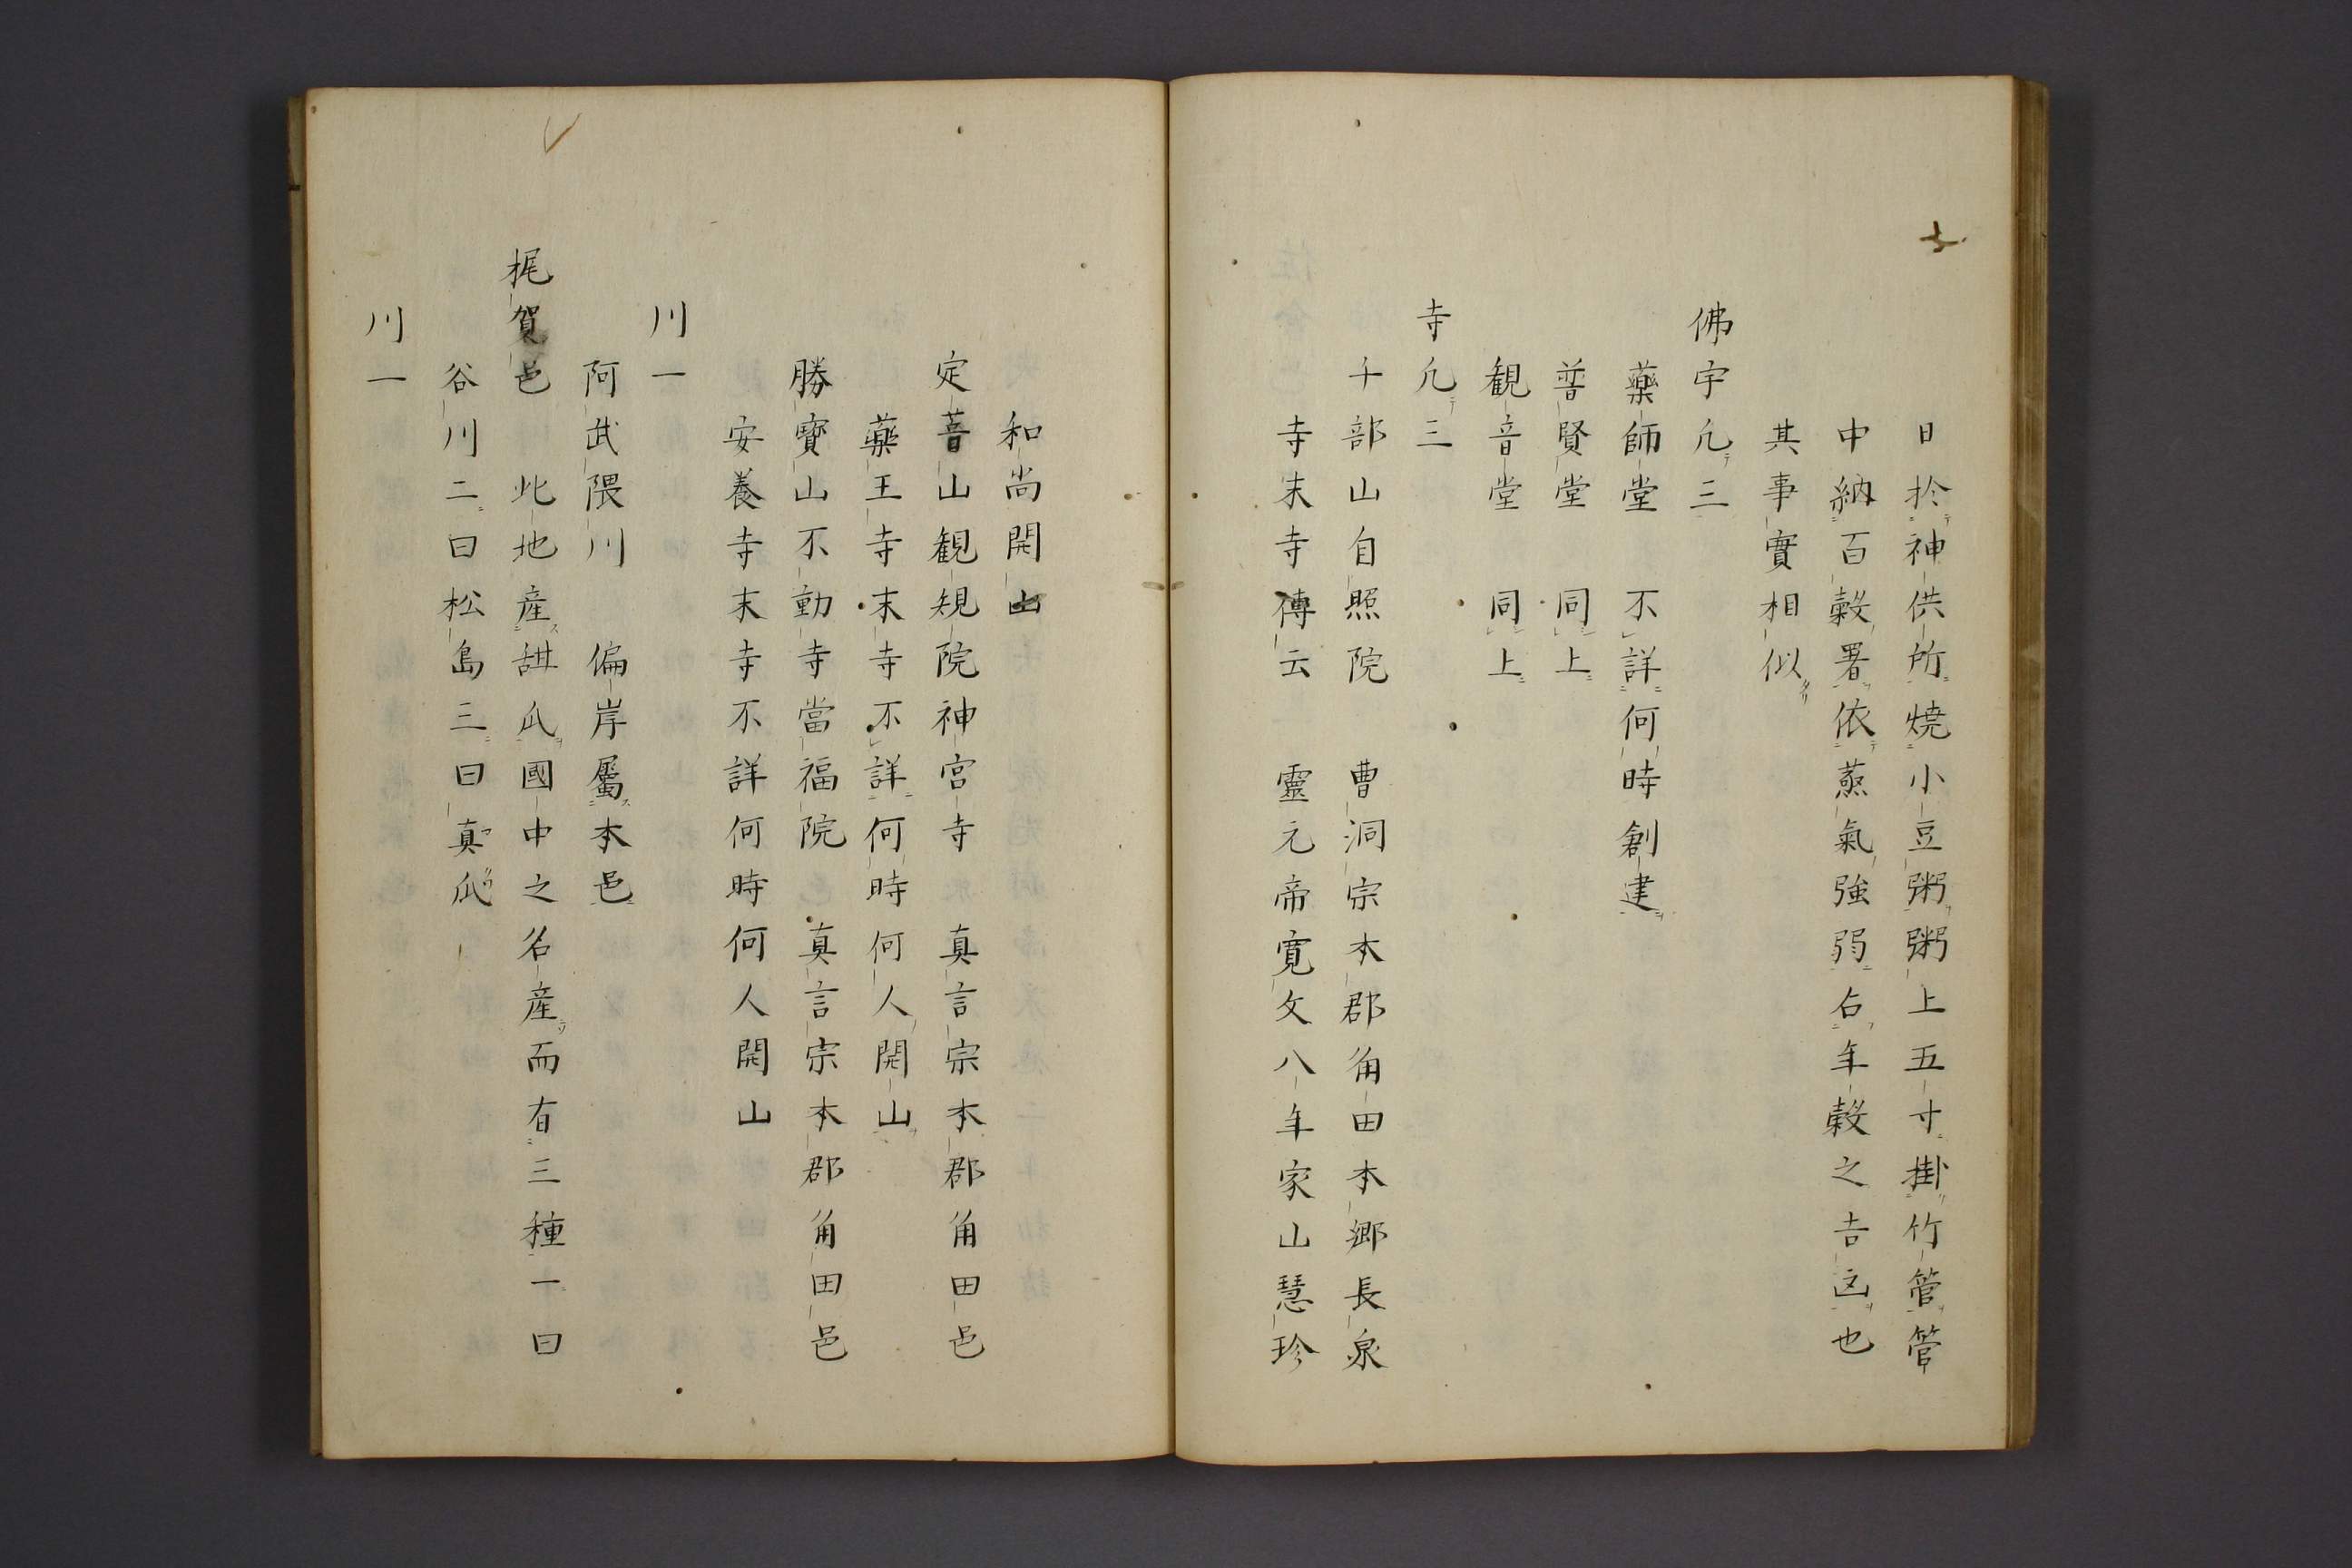 日於神供所燒小豆粥粥上五寸掛竹管管
中納百穀署依蒸氣強弱占年穀之吉凶也
其事實相似
佛宇凡三
藥師堂 不詳何時創建
普賢堂 同上
観音堂 同上
寺凡三
千部山自照院 曹洞宗本郡角田本郷長泉
寺末寺傳云 靈元帝寛文八年家山慧珍
和尚開山
定善山観規院神宮寺 真言宗本郡角田邑
藥王寺末寺不詳何時何人開山
勝寶山不動寺當福院 真言宗本郡角田邑
安養寺末寺不詳何時何人開山
川一
阿武隈川 偏岸屬本邑
梶賀邑 此地産甜瓜國中之名産而有三種一曰
谷川二曰松島三曰真瓜
川一